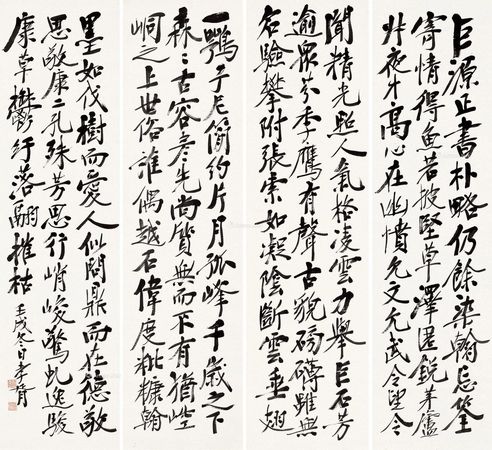 巨源正書朴略仍餘染翰忘筌
寄情得魚若披堅草澤匿銳茅廬
叔夜才高心在幽憤允文允武令望令
聞精光照人氣格凌雲力舉巨石芳
逾眾芬季鷹有聲古貌磅礴雖無
名驗攀附張索如凝陰斷雲垂翅
一鶚子尼簡約片月孤峰千歲之下
森〻古容彥先尚質無而不有猶崆
峒之上世俗誰偶越石偉度秕糠翰
墨如伐樹而愛人似問鼎而在德敬
思敬康二孔殊芳思行峭峻驚虬逸駿
康草鬱紆落翮摧枯 壬戌冬日